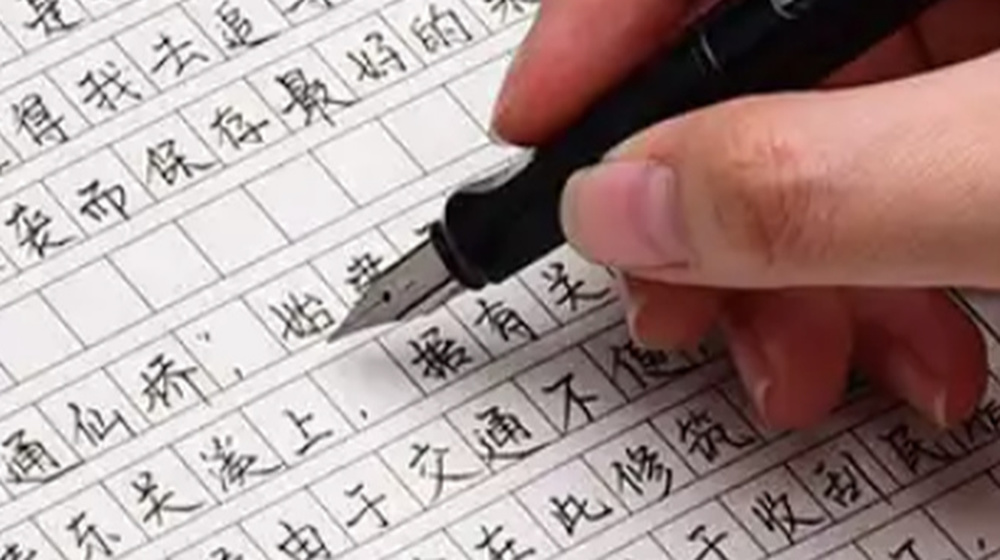 是
得我去追
而保存最好的
通仙桥”,始
东关溪上,据有关
由于交通不便,
在此修筑
于收刮民